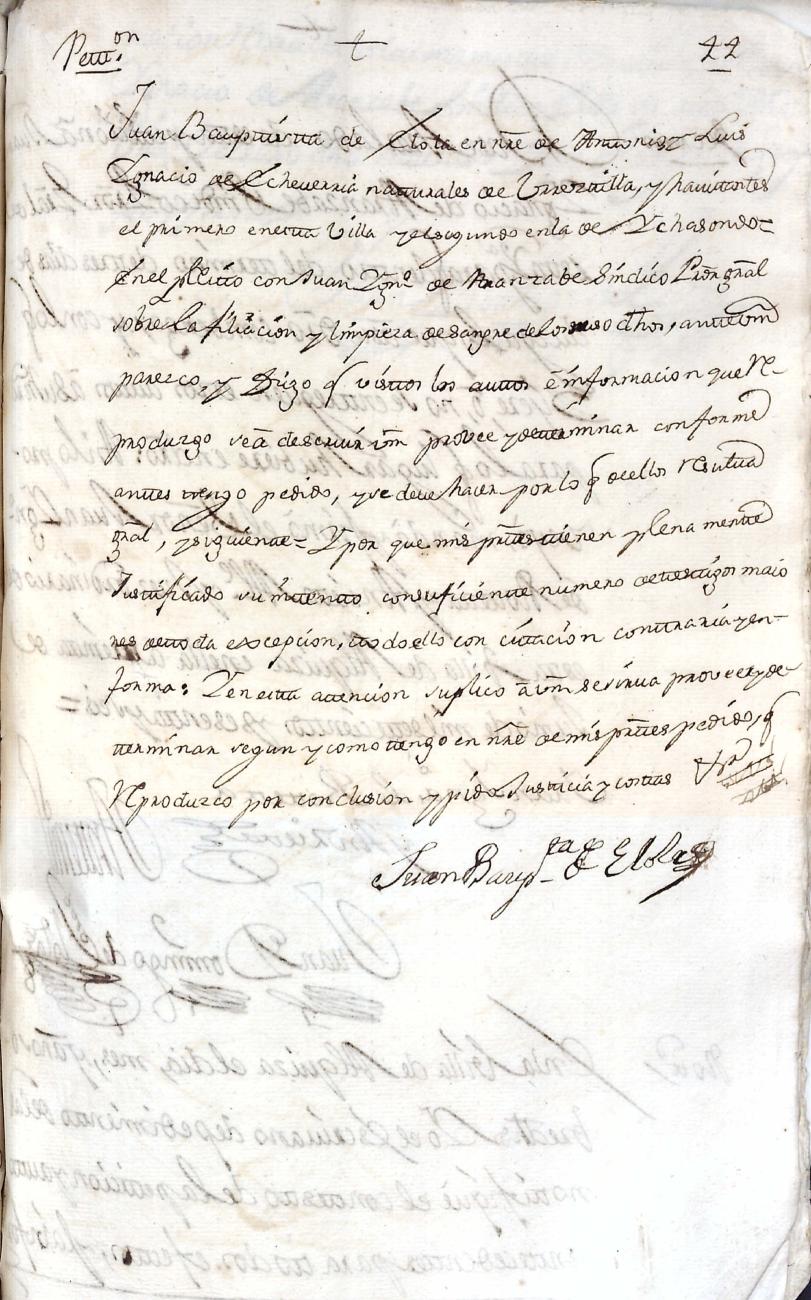 Petit.on † 44
Juan Bauptista de Elola en nre de Antonio y Luis
Ygnacio de Echeverria naturales de Urrestilla, y havitantes
el primero en esta Villa y el segundo en la de Ychasondo=
En el pleitto con Juan Ygn.o de Aranzabe Sindico Pror gñal
sobre la filiacion y limpieza de sangre de los suso dhos, antte Vm
parezco, y Digo q visttos los auttos e informacion que Re-
produzgo se a de servir Vm proveer y determinar conforme
antes tengo pedido, y se deve hacer por lo q de ellos resulta
gñal, y siguiente= Y por que mis prttes tienen plenamente
Justificado su inttentto con suficiente numero de testigos maio
res de toda excepcion, ttodo ello con cittacion contraria y en
forma: Y en esta attencion suplico a Vm se sirva proveer y de
tterminar segun y como tengo en nre de mis prttes pedido, q
Reproduzco por conclusion y pido Justicia y costas
Juan Baup.ta de Elola